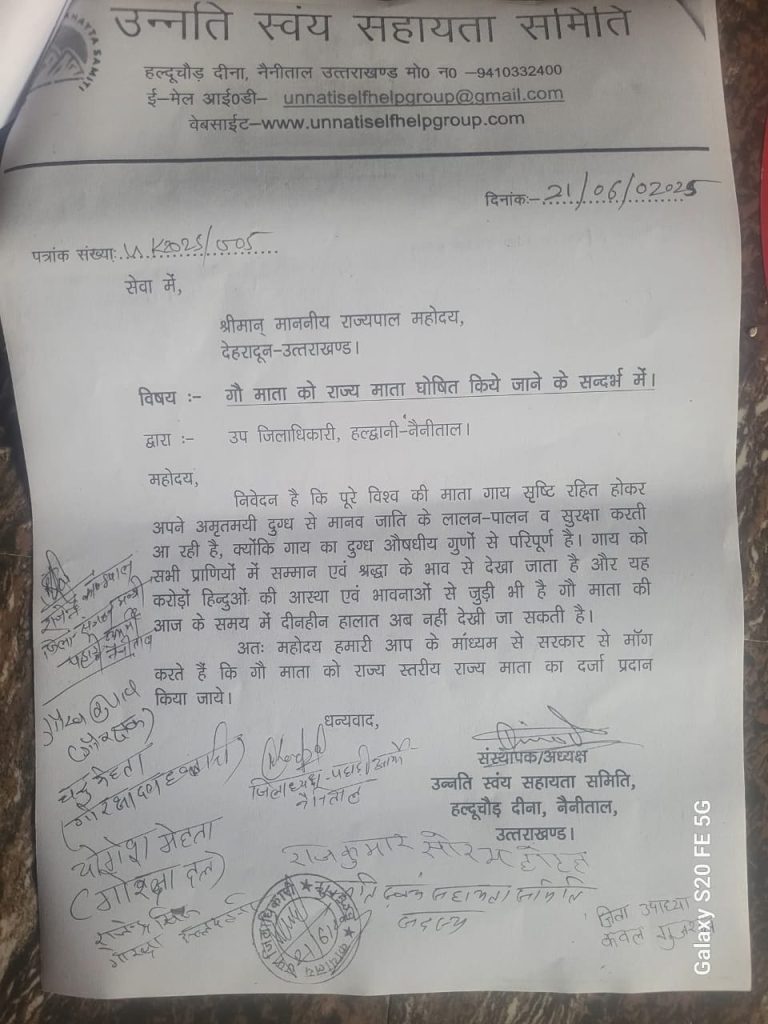 उन्नति स्वंय सहायता समिति
हल्दूचौड़ दीना, नैनीताल उत्तराखण्ड मो0 न0 –9410332400
ई–मेल आई0डी– unnatiselfhelpgroup@gmail.com
वेबसाईट–www.unnatiselfhelpgroup.com
दिनांकः–21/06/02025
पत्रांक संख्याः
सेवा में,
श्रीमान् माननीय राज्यपाल महोदय,
देहरादून–उत्तराखण्ड।
विषय :– गौ माता को राज्य माता घोषित किये जाने के सन्दर्भ में।
द्वारा :– उप जिलाधिकारी, हल्द्वानी–नैनीताल।
महोदय,
निवेदन है कि पूरे विश्व की माता गाय सृष्टि रहित होकर
अपने अमृतमयी दुग्ध से मानव जाति के लालन–पालन व सुरक्षा करती
आ रही है, क्योंकि गाय का दुग्ध औषधीय गुणों से परिपूर्ण है। गाय को
सभी प्राणियों में सम्मान एवं श्रद्धा के भाव से देखा जाता है और यह
करोड़ों हिन्दुओं की आस्था एवं भावनाओं से जुड़ी भी है गौ माता की
आज के समय में दीनहीन हालात अब नहीं देखी जा सकती है।
अतः महोदय हमारी आप के मांध्यम से सरकार से मॉग
करते है कि गौ माता को राज्य स्तरीय राज्य माता का दर्जा प्रदान
किया जाये।
धन्यवाद,
संस्थापक/अध्यक्ष
उन्नति स्वंय सहायता समिति,
हल्दूचौड़ दीना, नैनीताल,
उत्तराखण्ड।
जिलाध्यक्ष–पहाड़ी आर्मी
नैनीताल
योगेश मेहता
(गौरक्षा दल)
राजकुमार
सदस्य
Galaxy S20 FE 5G